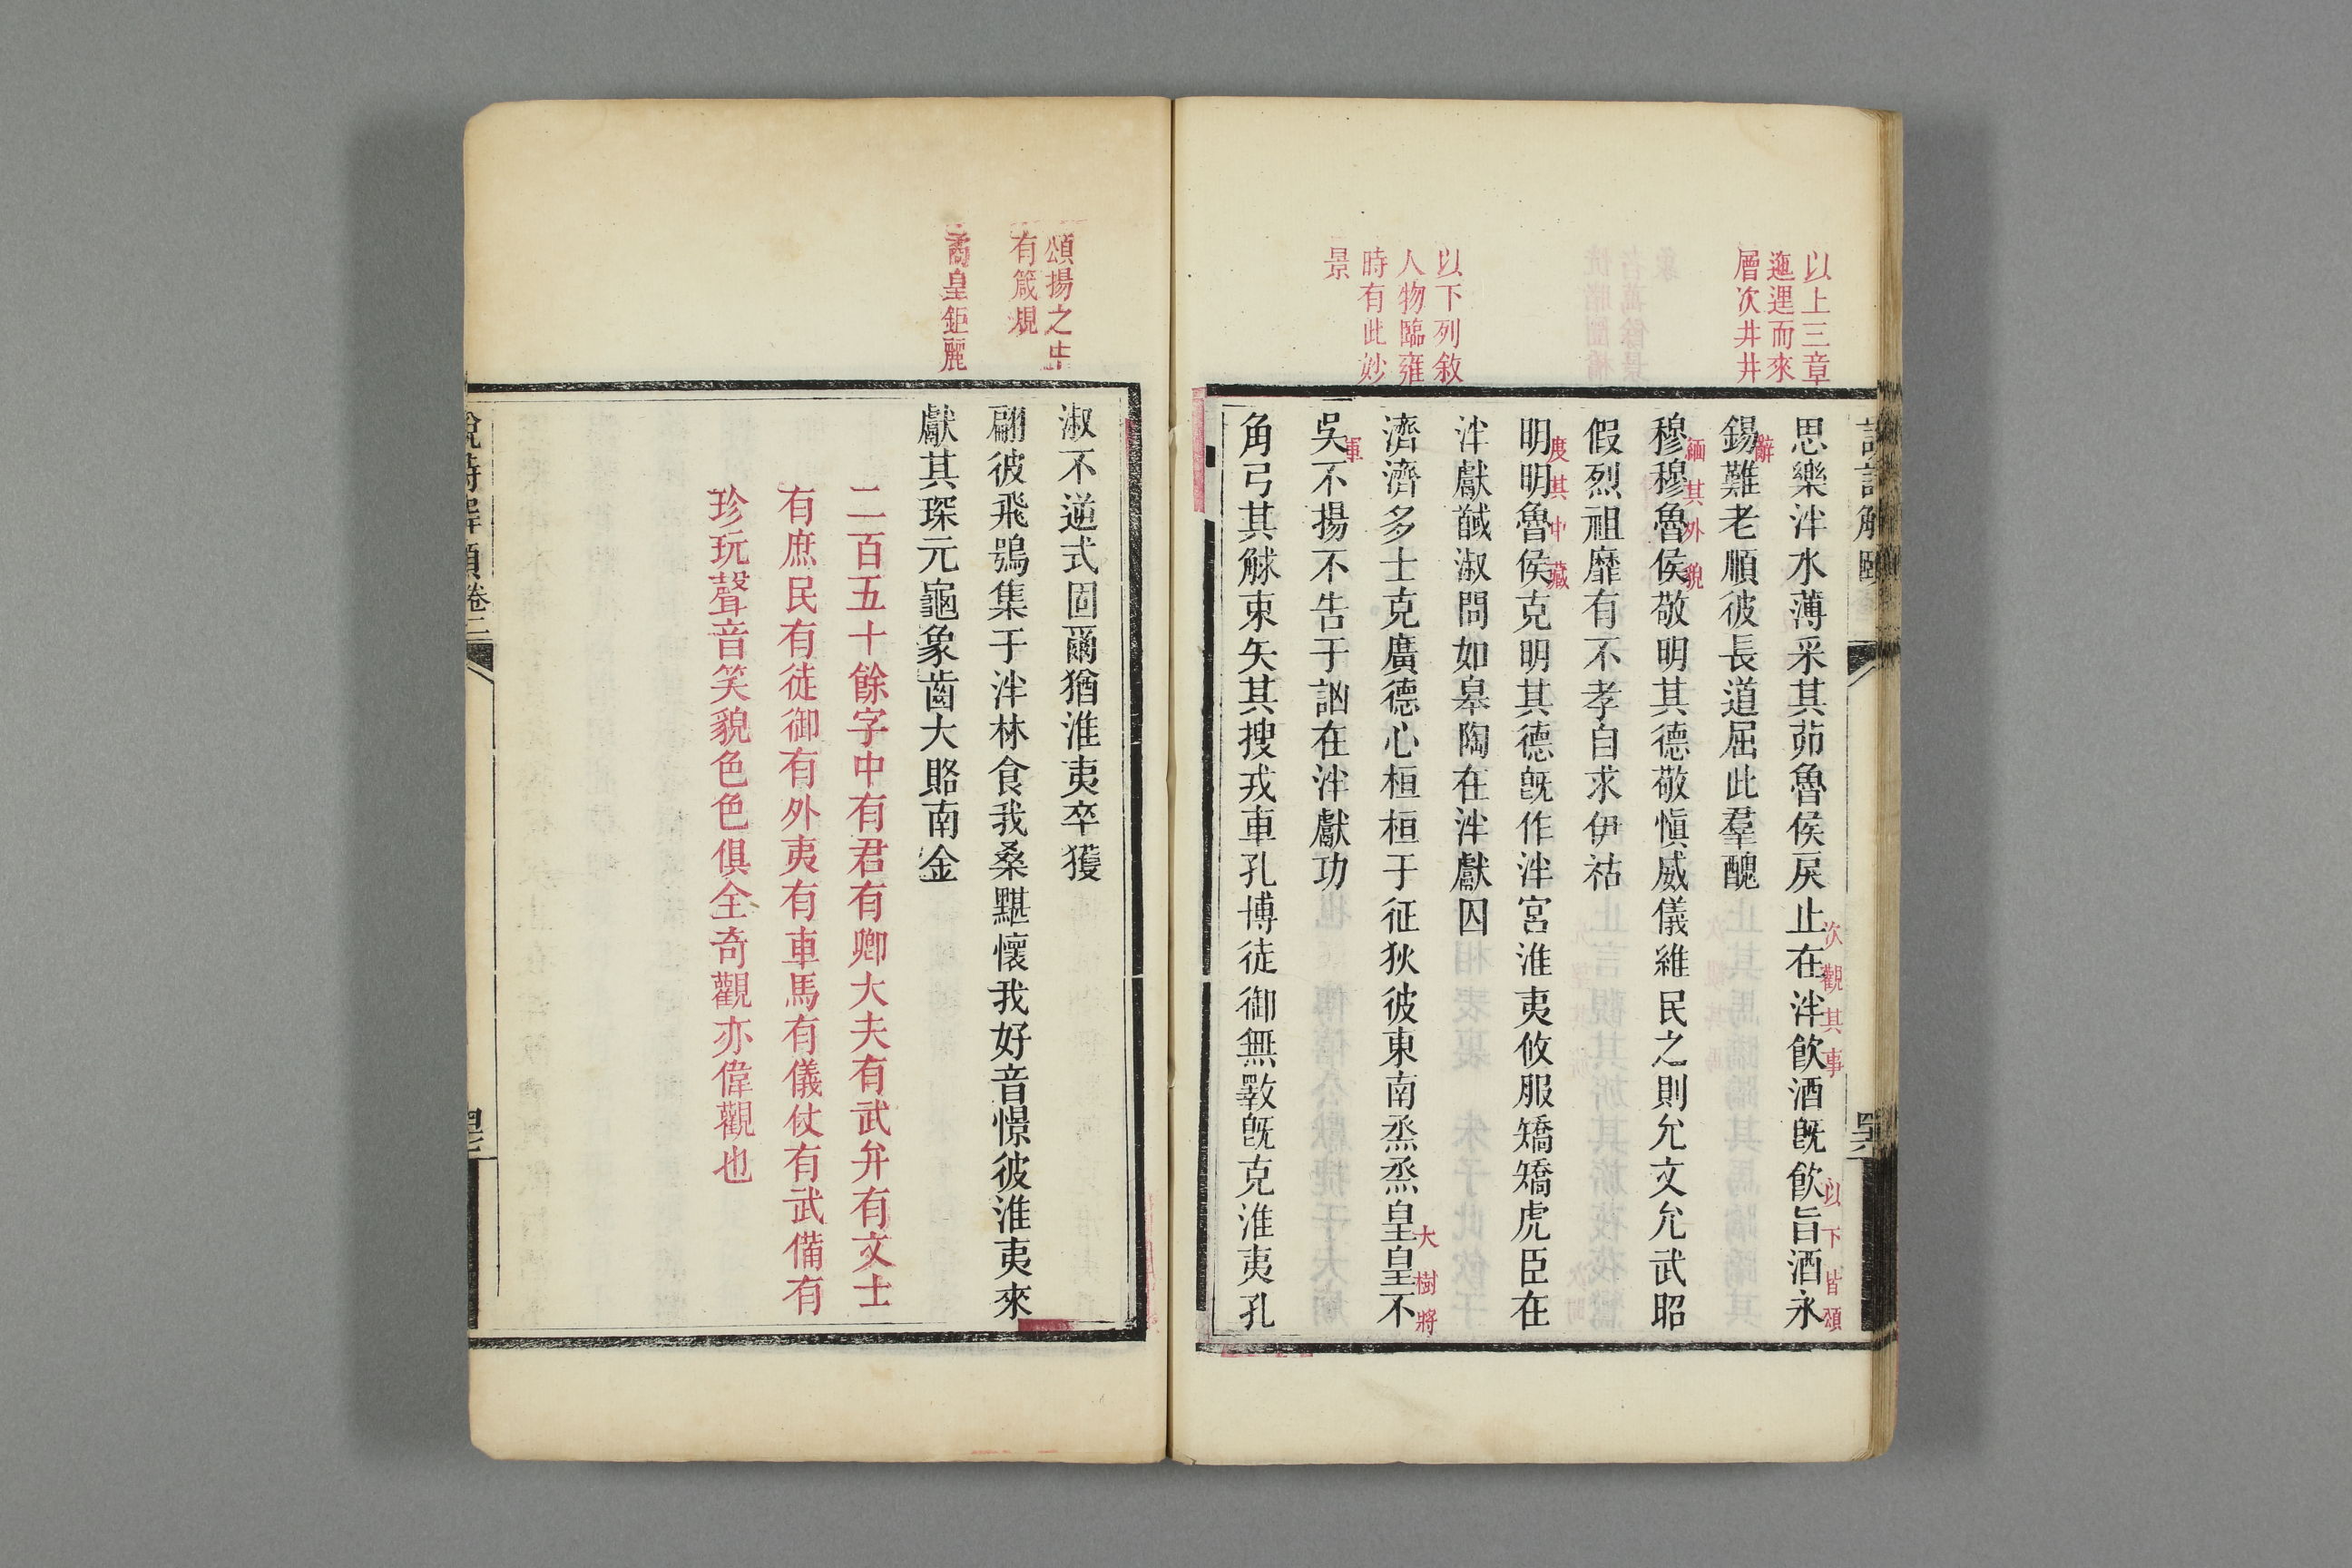 以上三章
迤逦而來
層次井井
以下列敘
人物臨雍
時有此妙
景
思樂泮水薄采其茆魯侯戾止在泮飮酒旣飮旨酒永
次觀其事
以下皆頌
錫難老順彼長道屈此羣醜
辭
穆穆魯侯敬明其德敬愼威儀維民之則允文允武昭
緬其外貌
假烈祖靡有不孝自求伊祜
明明魯侯克明其德旣作泮宮淮夷攸服矯矯虎臣在
度其中藏
泮獻馘淑問如皋陶在泮獻囚
濟濟多士克廣德心桓桓于征狄彼東南烝烝皇皇不
大樹將
吳不揚不告于訩在泮獻功
軍
角弓其觩束矢其搜戎車孔博徒御無斁旣克淮夷孔
頌揚之中
有箴規
矞皇鉅麗
淑不逆式固爾猶淮夷卒獲
翩彼飛鴞集于泮林食我桑黮懷我好音憬彼淮夷來
獻其琛元龜象齒大賂南金
二百五十餘字中有君有卿大夫有武弁有文士
有庶民有徒御有外夷有車馬有儀仗有武備有
珍玩聲音笑貌色色俱全奇觀亦偉觀也